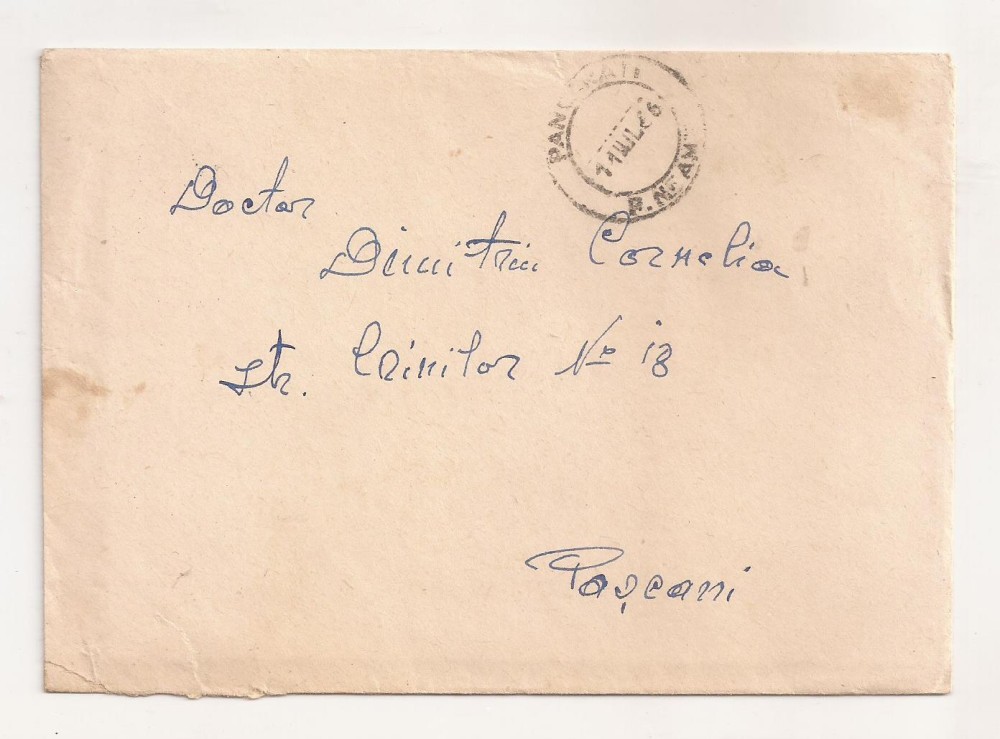 PANGARATI
P. NEAMȚ
Doctor
Dimitriu Cornelia
str. Crinilor No 18
Pașcani